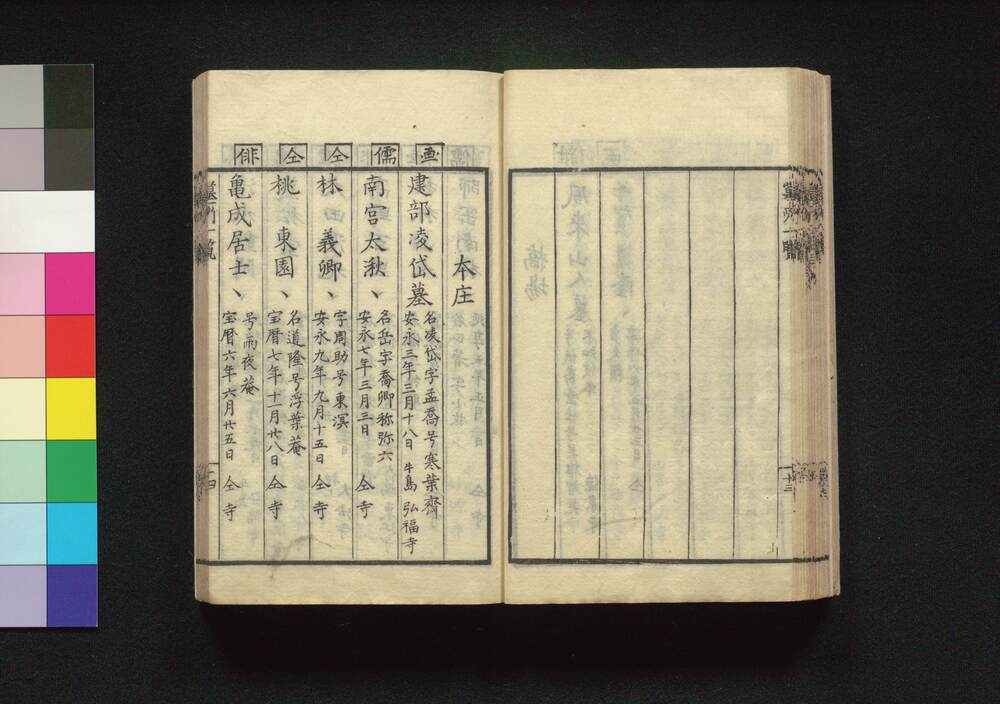 本庄
画
建部凌岱墓
名凌岱字孟喬号寒葉齋
安永三年三月十八日 牛島 弘福寺
儒
南宮太湫、
名岳字喬卿称弥六
安永七年三月三日 仝寺
仝
林義卿、
字周助号東溟
安永九年九月十五日 仝寺
仝
桃東園、
名道隆号浮葉菴
宝暦七年十一月廿八日 仝寺
俳
亀成居士、
号雨夜菴
宝暦六年六月廿五日 仝寺
墓所一覧
十四